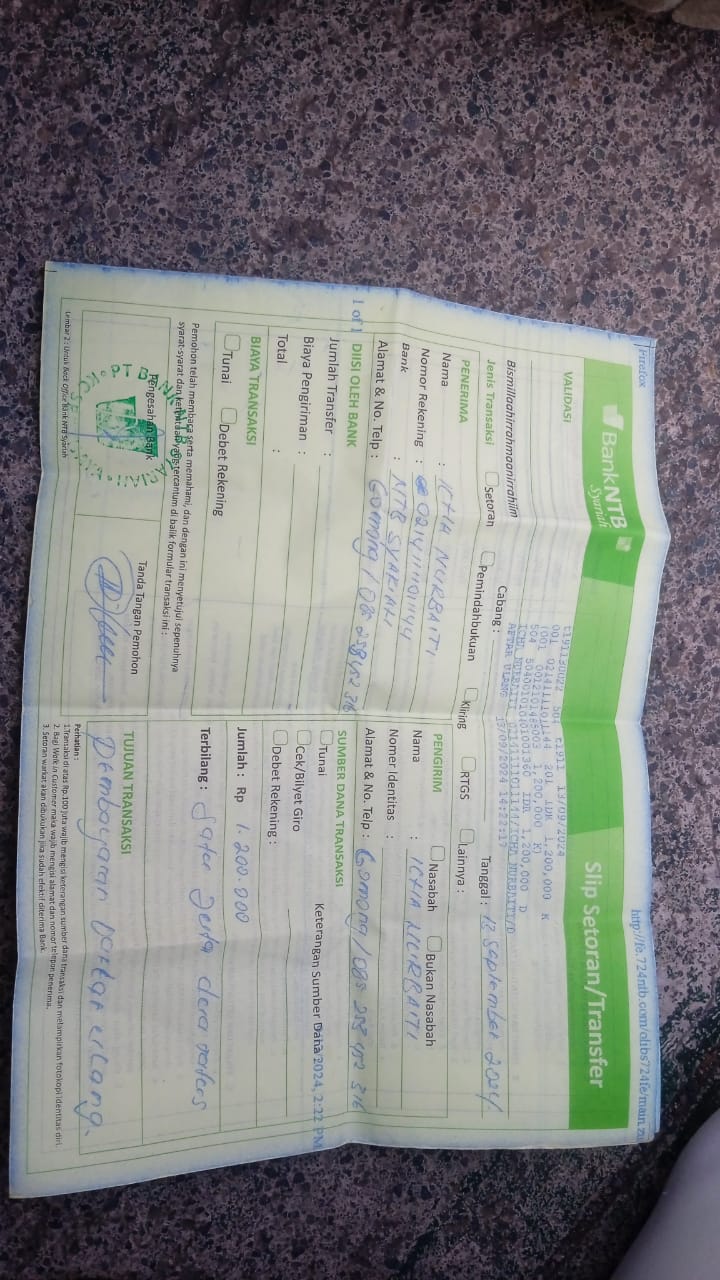 Firefox
http://fe.724ntb.com/olibs724fe/main.zu
BankNTB
Syariah
Slip Setoran/Transfer
VALIDASI
t1911 13/09/2024
1,200,000 K
1,200,000 K)
IDR 1,200,000 D
13/09/2024 14:22:17
Bismillaahirrahmaanirrahiim
Cabang :
Tanggal : 12 September 2024
Jenis Transaksi
Setoran
Pemindahbukuan
Kliring
RTGS
Lainnya :
PENERIMA
Nama : ICHA NURBAITI
Nomor Rekening :
Bank : NTB SYARIAH
Alamat & No. Telp : Gomong / 085 258 452 316
PENGIRIM
Nasabah
Bukan Nasabah
Nama : ICHA NURBAITI
Nomer Identitas :
Alamat & No. Telp : Gomong / 085 258 452 316
1 of 1
DIISI OLEH BANK
Jumlah Transfer :
Biaya Pengiriman :
Total :
BIAYA TRANSAKSI
Tunai
Debet Rekening
SUMBER DANA TRANSAKSI
Tunai
Cek/Bilyet Giro
Debet Rekening :
Keterangan Sumber Dana
/2024, 2:22 PM
Jumlah : Rp 1.200.000
Terbilang : Satu Juta dua ratus
Pemohon telah membaca serta memahami, dan dengan ini menyetujui sepenuhnya
syarat-syarat dan ketentuan yang tercantum di balik formulir transaksi ini :
Pengesahan Bank
Tanda Tangan Pemohon
TUJUAN TRANSAKSI
Pembayaran Daftar ulang.
Perhatian :
1.Transaksi di atas Rp.100 juta wajib mengisi keterangan sumber dana transaksi dan melampirkan fotokopi identitas diri.
2. Bagi Walk in Customer maka wajib mengisi alamat dan nomor telepon penerima.
3. Setoran warkat akan dibukukan jika sudah efektif diterima Bank.
Lembar 2 : Untuk Back Office Bank NTB Syariah